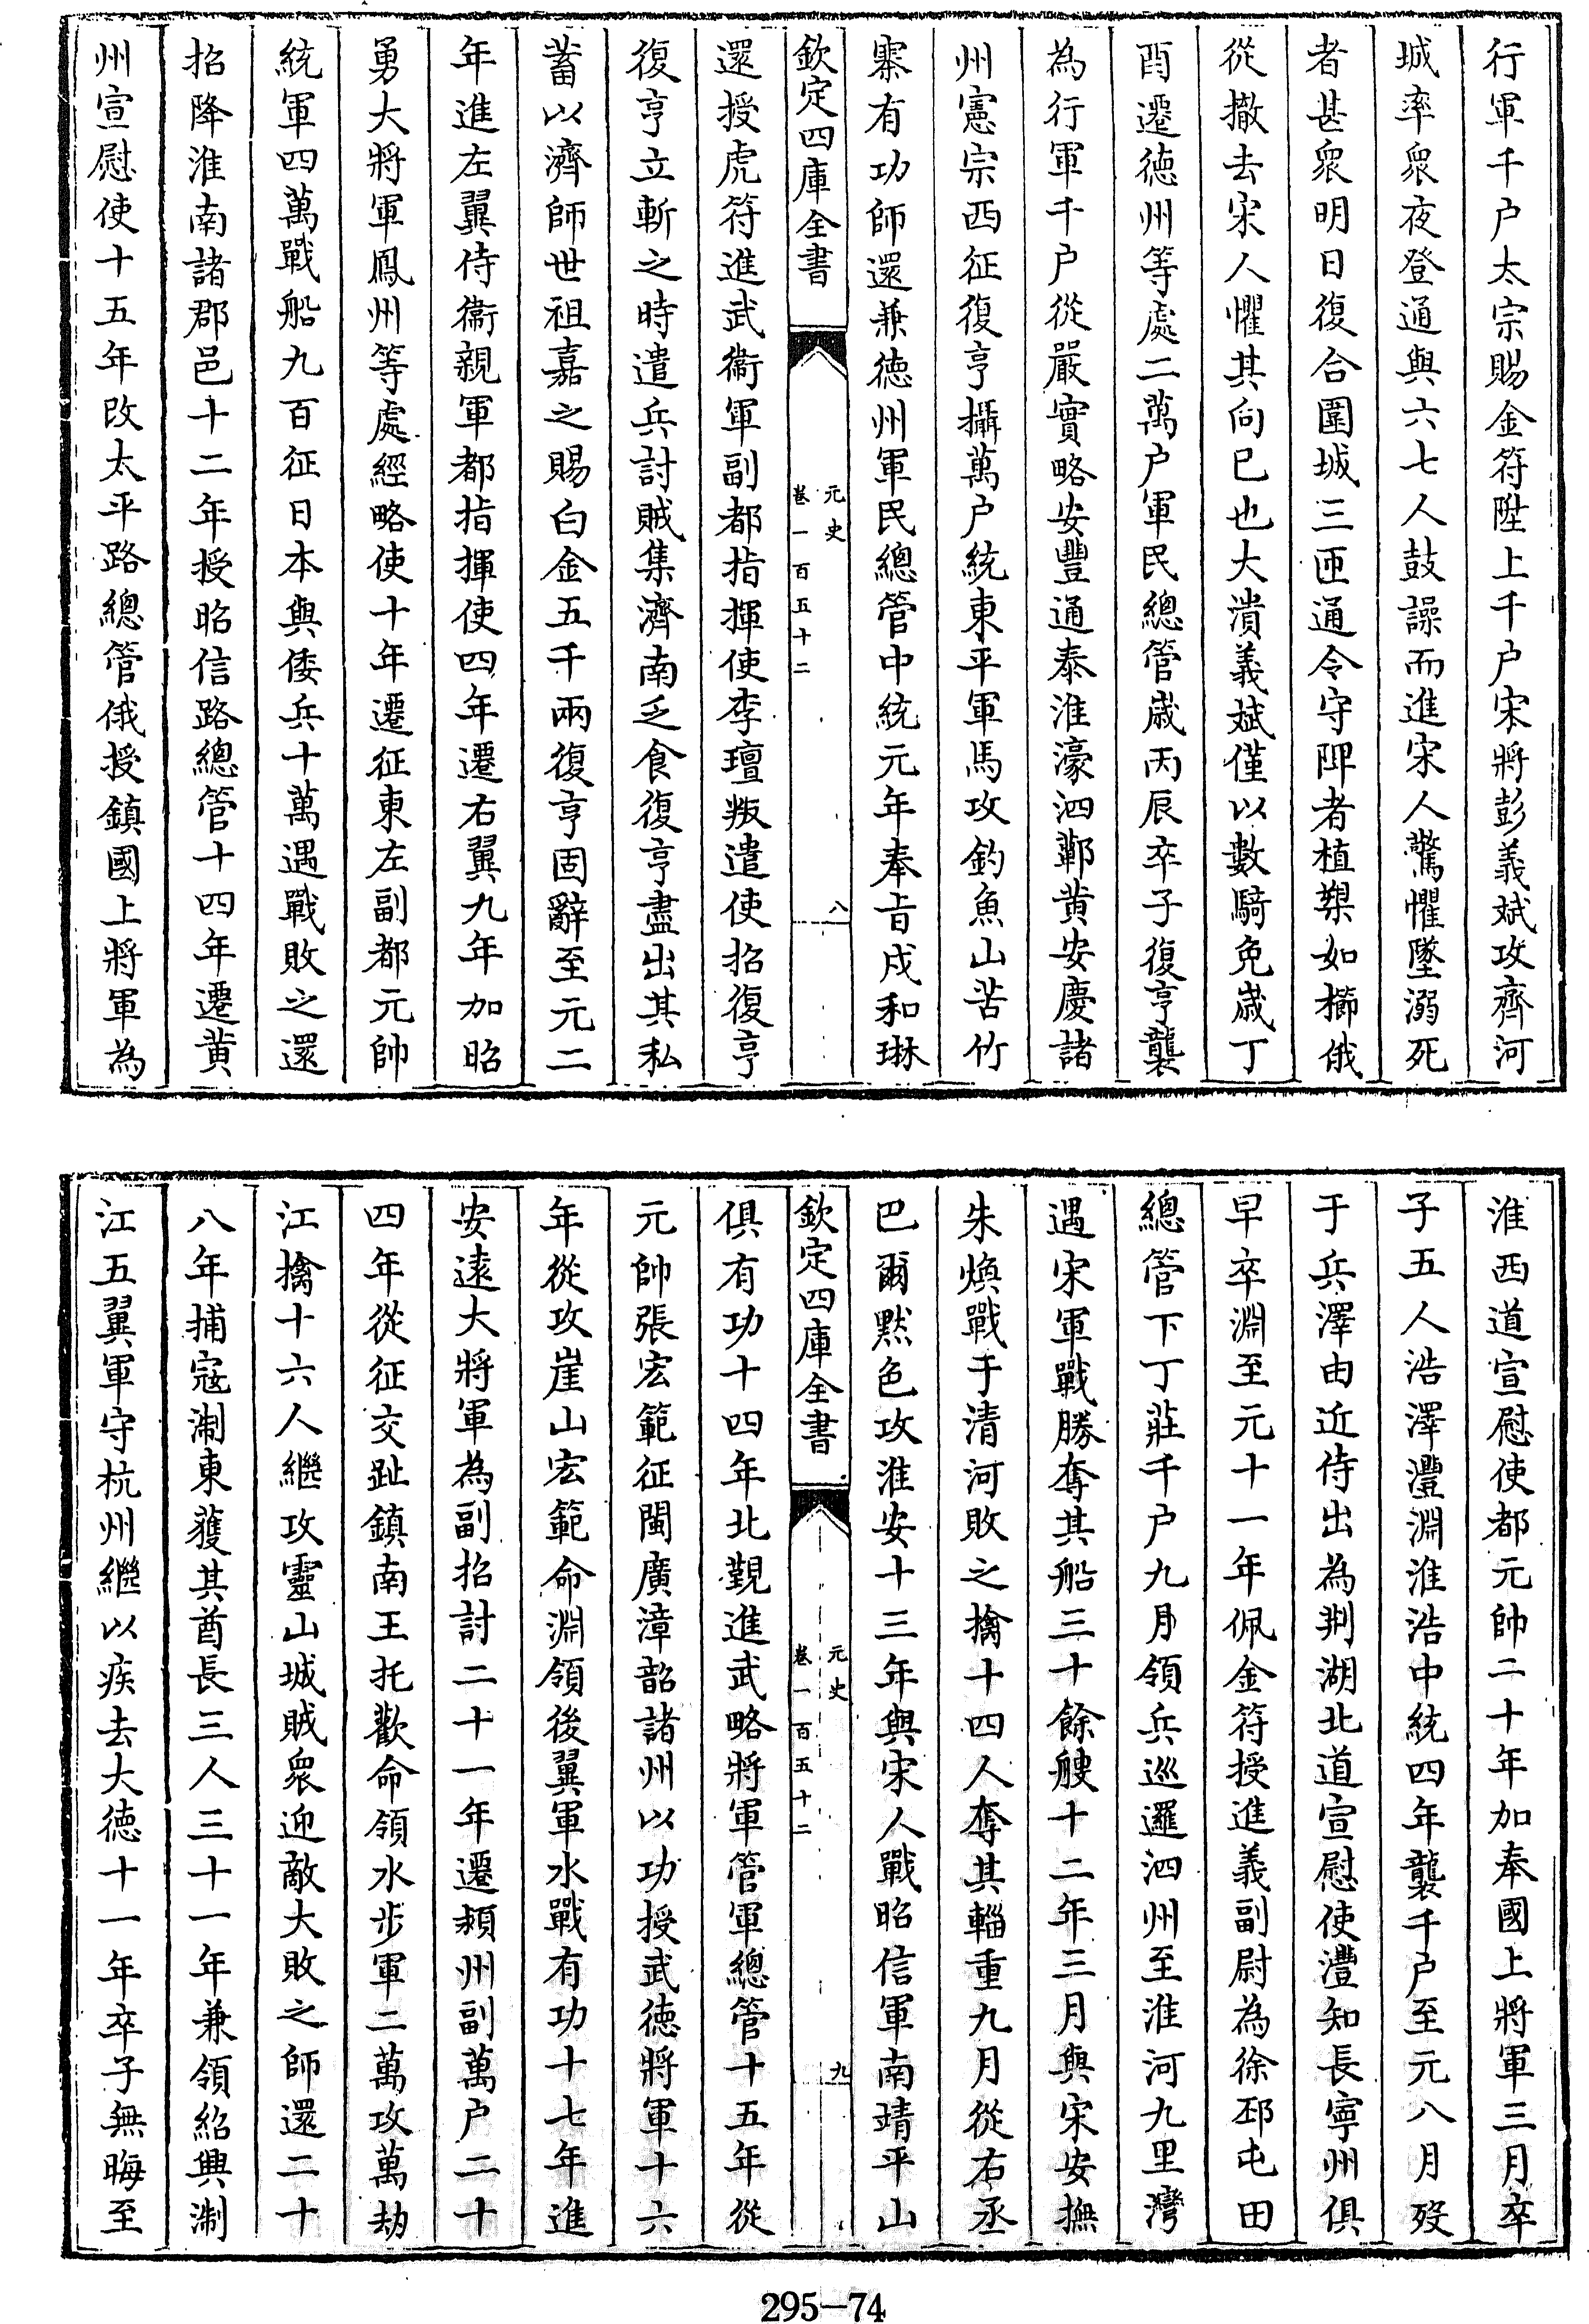 行軍千户太宗賜金符陞上千户宋將彭義斌攻齊河
城率衆夜登通與六七人鼓譟而進宋人驚懼墜溺死
者甚衆明日復合圍城三匝通令守陴者植槊如櫛俄
從撤去宋人懼其向已也大潰義斌僅以數騎免歳丁
酉遷德州等處二萬户軍民總管歳丙辰卒子復亨襲
為行軍千户從嚴實略安豐通泰淮濠泗蘄黄安慶諸
州憲宗西征復亨攝萬户統東平軍馬攻釣魚山苦竹
寨有功師還兼德州軍民總管中統元年奉㫖戍和琳
欽定四庫全書
元史
卷一百五十二
八
還授虎符進武衛軍副都指揮使李璮叛遣使招復亨
復亨立斬之時遣兵討賊集濟南乏食復亨盡出其私
蓄以濟師世祖嘉之賜白金五千兩復亨固辭至元二
年進左翼侍衛親軍都指揮使四年遷右翼九年加昭
勇大將軍鳳州等處經略使十年遷征東左副都元帥
統軍四萬戰船九百征日本與倭兵十萬遇戰敗之還
招降淮南諸郡邑十二年授昭信路總管十四年遷黄
州宣慰使十五年改太平路總管俄授鎮國上將軍為
淮西道宣慰使都元帥二十年加奉國上將軍三月卒
子五人浩澤灃淵淮浩中統四年襲千户至元八月歿
于兵澤由近侍出為荆湖北道宣慰使灃知長寧州俱
早卒淵至元十一年佩金符授進義副尉為徐邳屯田
總管下丁莊千户九月領兵巡邏泗州至淮河九里灣
遇宋軍戰勝奪其船三十餘艘十二年三月與宋安撫
朱煥戰于清河敗之擒十四人奪其輜重九月從右丞
巴爾黙色攻淮安十三年與宋人戰昭信軍南靖平山
欽定四庫全書
元史
卷一百五十二
九
俱有功十四年北覲進武略將軍管軍總管十五年從
元帥張宏範征閩廣漳韶諸州以功授武德將軍十六
年從攻崖山宏範命淵領後翼軍水戰有功十七年進
安逺大將軍為副招討二十一年遷頴州副萬户二十
四年從征交趾鎮南王托歡命領水步軍二萬攻萬劫
江擒十六人繼攻靈山城賊衆迎敵大敗之師還二十
八年捕寇淛東獲其酋長三人三十一年兼領紹興淛
江五翼軍守杭州繼以疾去大德十一年卒子無晦至
295-74